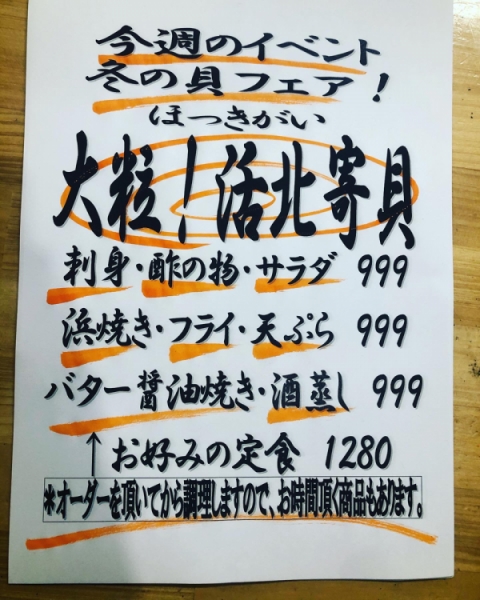 今週のイベント
冬の貝フェア!
ほっきがい
大粒!活北寄貝
刺身・酢の物・サラダ 999
浜焼き・フライ・天ぷら 999
バター醤油焼き・酒蒸し 999
↑お好みの定食 1280
*オーダーを頂いてから調理しますので、お時間頂く商品もあります。